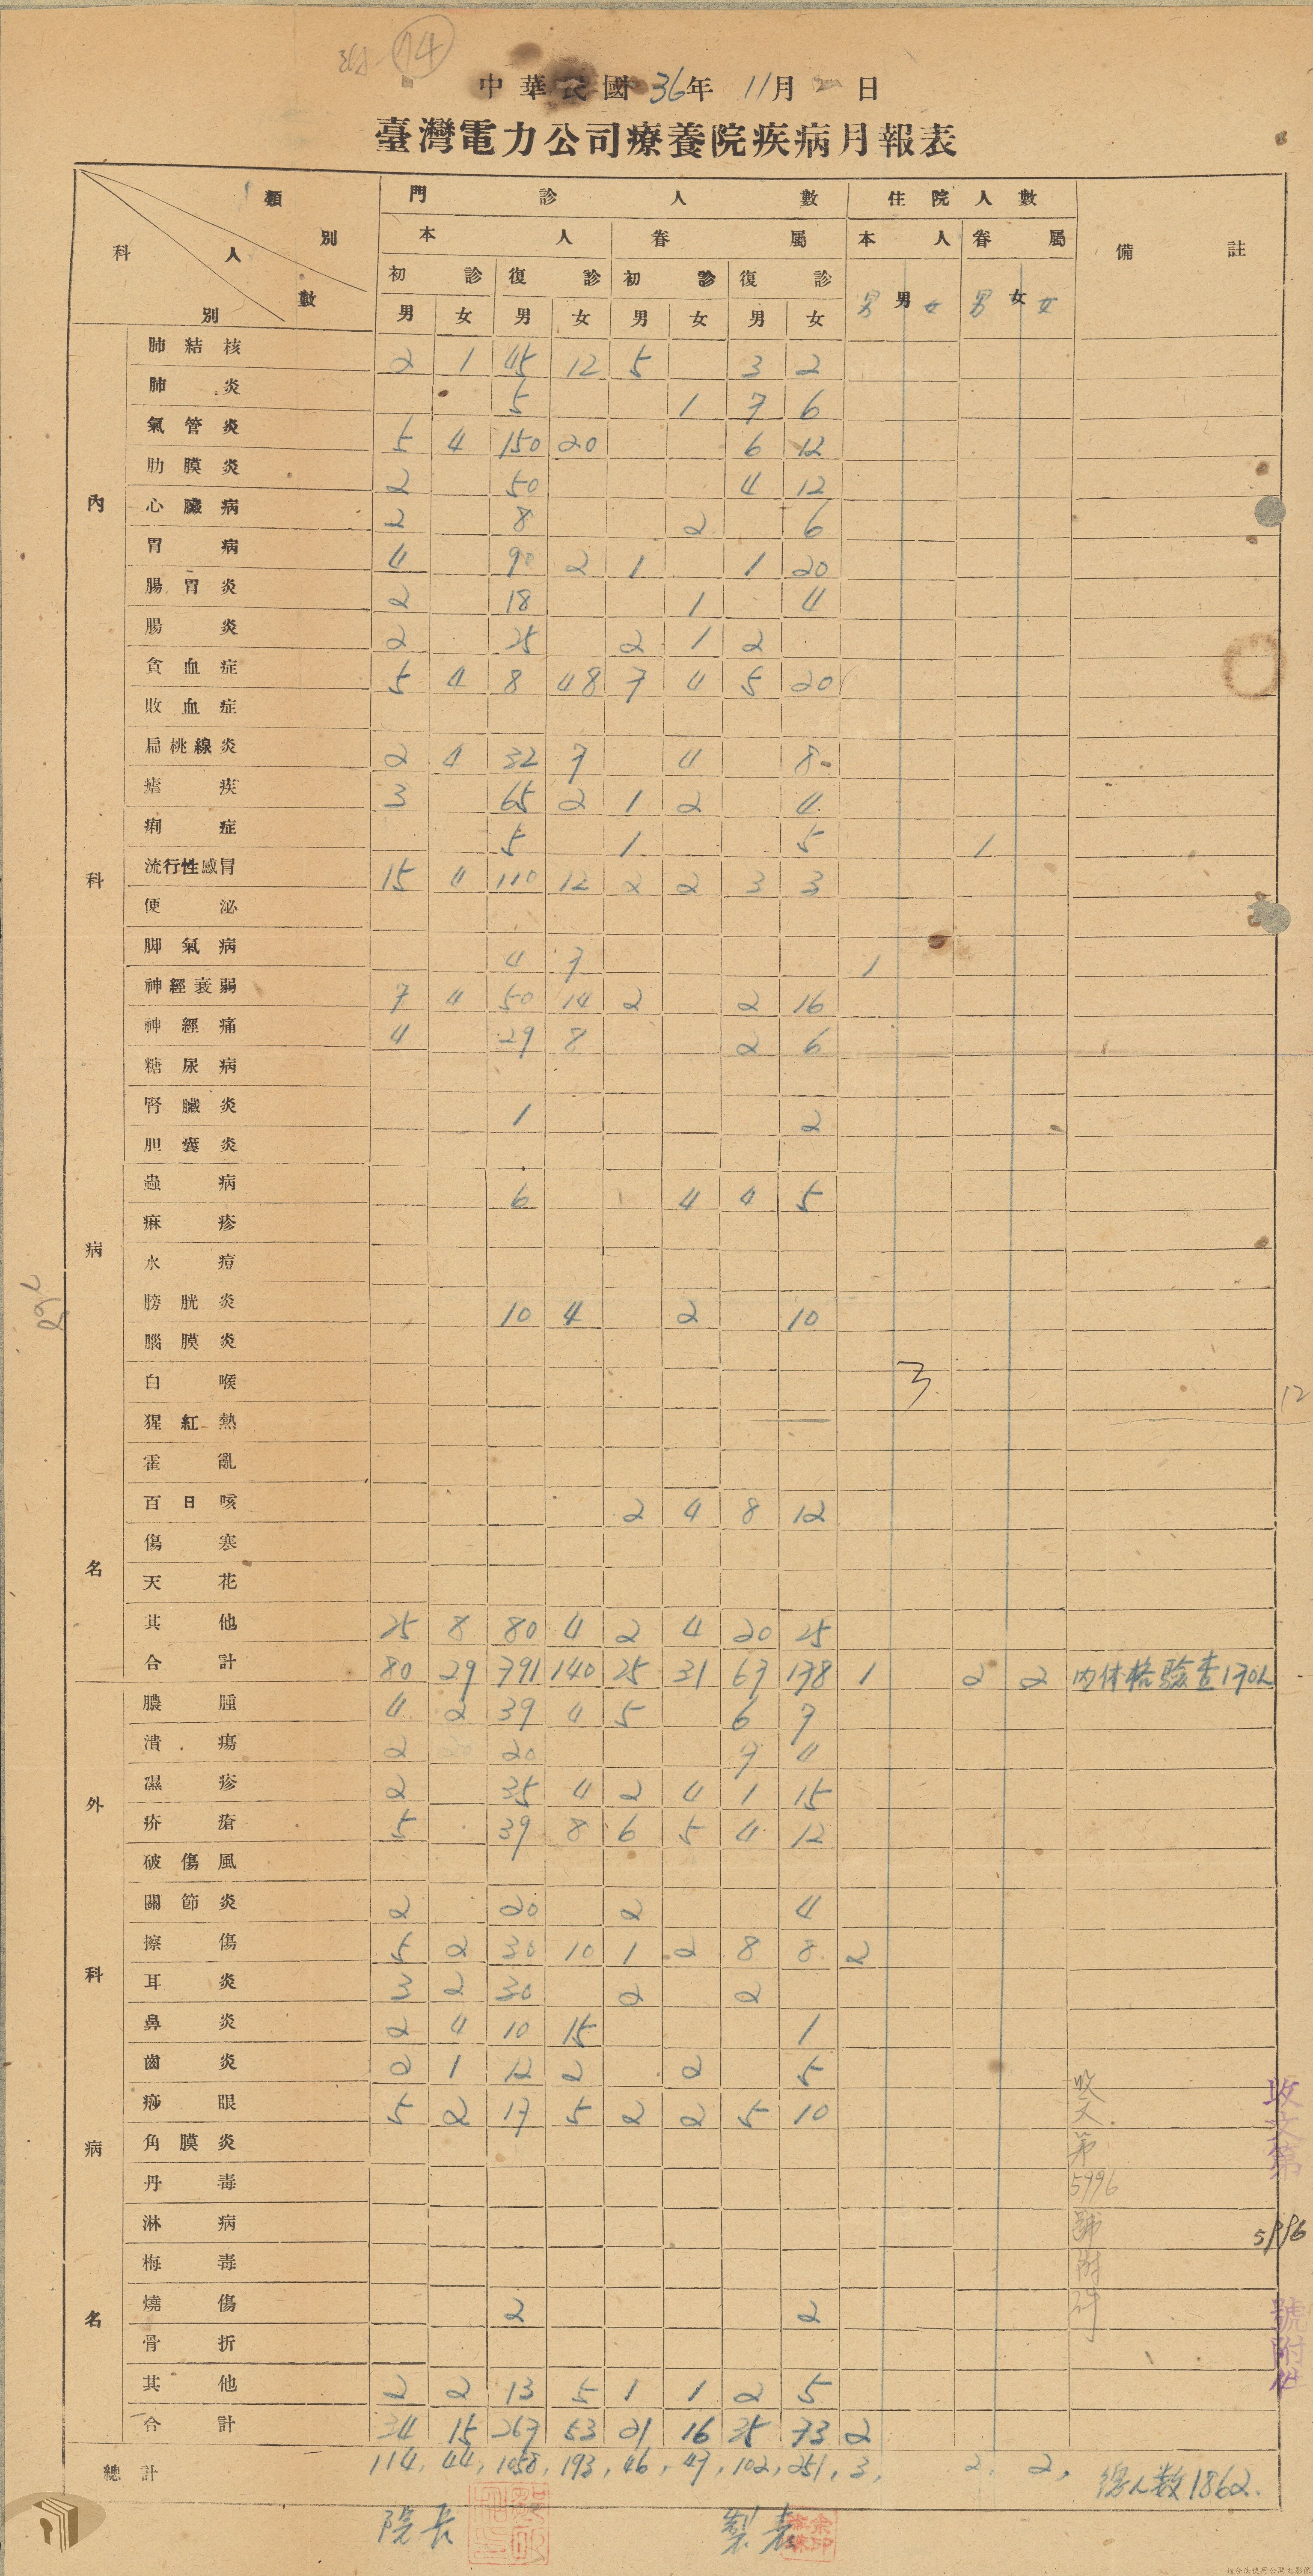 附 14
中華民國36年 11月 日
臺灣電力公司療養院疾病月報表
類別 人數 科別 門診人數 住院人數 備註
本人 眷屬 本人 眷屬
初診 復診 初診 復診
男 女 男 女 男 女 男 女 男 男 女 男 女 女
內科病名
肺結核 2 1 45 12 5 3 2
肺炎 5 1 7 6
氣管炎 5 4 150 20 6 12
肋膜炎 2 50 4 12
心臟病 2 8 2 6
胃病 4 90 2 1 1 20
腸胃炎 2 18 1 4
腸炎 2 25 2 1 2
貪血症 5 4 8 48 7 4 5 20
敗血症
扁桃線炎 2 4 32 7 4 8
瘧疾 3 65 2 1 2 4
痢症 5 1 5 1
流行性感冒 15 4 110 12 2 2 3 3
便泌
脚氣病 4 7 1
神經衰弱 7 4 50 14 2 2 16
神經痛 4 29 8 2 6
糖尿病
腎臟炎 1 2
胆囊炎
蟲病 6 4 4 5
痳疹
水痘
膀胱炎 10 4 2 10
腦膜炎
白喉 3
猩紅熱
霍亂
百日咳 2 4 8 12
傷寒
天花
其他 25 8 80 4 2 4 20 25
合計 80 29 791 140 25 31 67 178 1 2 2 內体格驗查170人
外科病名
膿腫 4 2 39 4 5 6 7
潰瘍 2 20 7 4
濕疹 2 35 4 2 4 1 15
疥瘡 5 39 8 6 5 4 12
破傷風
關節炎 2 20 2 4
擦傷 5 2 30 10 1 2 8 8 2
耳炎 3 2 30 2 2
鼻炎 2 4 10 15 1
齒炎 2 1 12 2 2 5
痧眼 5 2 17 5 2 2 5 10
角膜炎
丹毒
淋病
梅毒
燒傷 2 2
骨折
其他 2 2 13 5 1 1 2 5
合計 34 15 267 53 21 16 35 73 2
總計 114, 44, 1058, 193, 46, 47, 102, 251, 3, 2, 2, 總人数1862.
院長 製表
收文第5996號附件
收文第 5996 號附件
12
請合法使用公開之影像